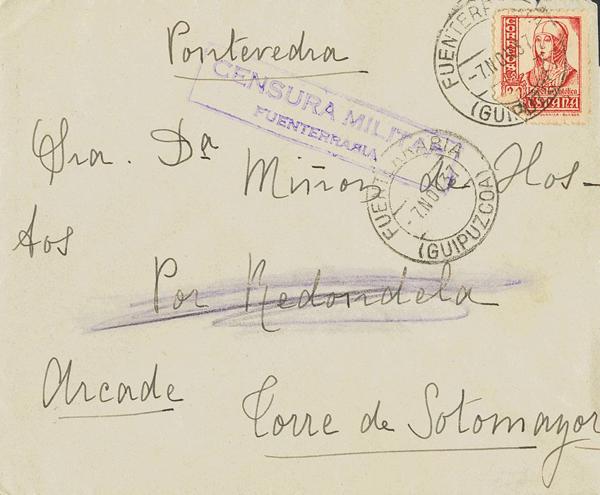 Pontevedra
CORREOS
ESPAÑA
FUENTERRABIA
-7.NOV.37
(GUIPUZCOA)
CENSURA MILITAR
FUENTERRABIA
FUENTERRABIA
-7.NOV.37
(GUIPUZCOA)
Sra. Dª
Miñon de Hos-
tos
Por Redondela
Arcade
Torre de Sotomayor